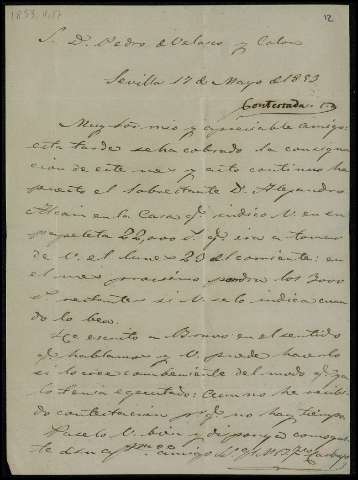 1853
12
S. D. Pedro de Velasco y
Sevilla 17 de Mayo de 1853
Contestada
Muy Sor mio y apreciable amigo:
esta tarde se ha cobrado la consigna
cion de este mes y acto continuo ha
puesto el Sobrestante D. Alejandro
en la Casa q. indicó V. en su
papeleta 22,000 q. ira a tomar
de V. el lunes 23 del corriente: en
el mes procsimo los 3000
restantes si V. se lo indica cuan
do lo vea.
He escrito a en el sentido
q. hablamos y V. puede hacerlo
si lo cree conbeniente del modo q. ya
lo tenia egecutado: aun no he recibi
do contestacion p.q. no hay tiempo
Paselo V. bien y disponga como gus
te de su amigo